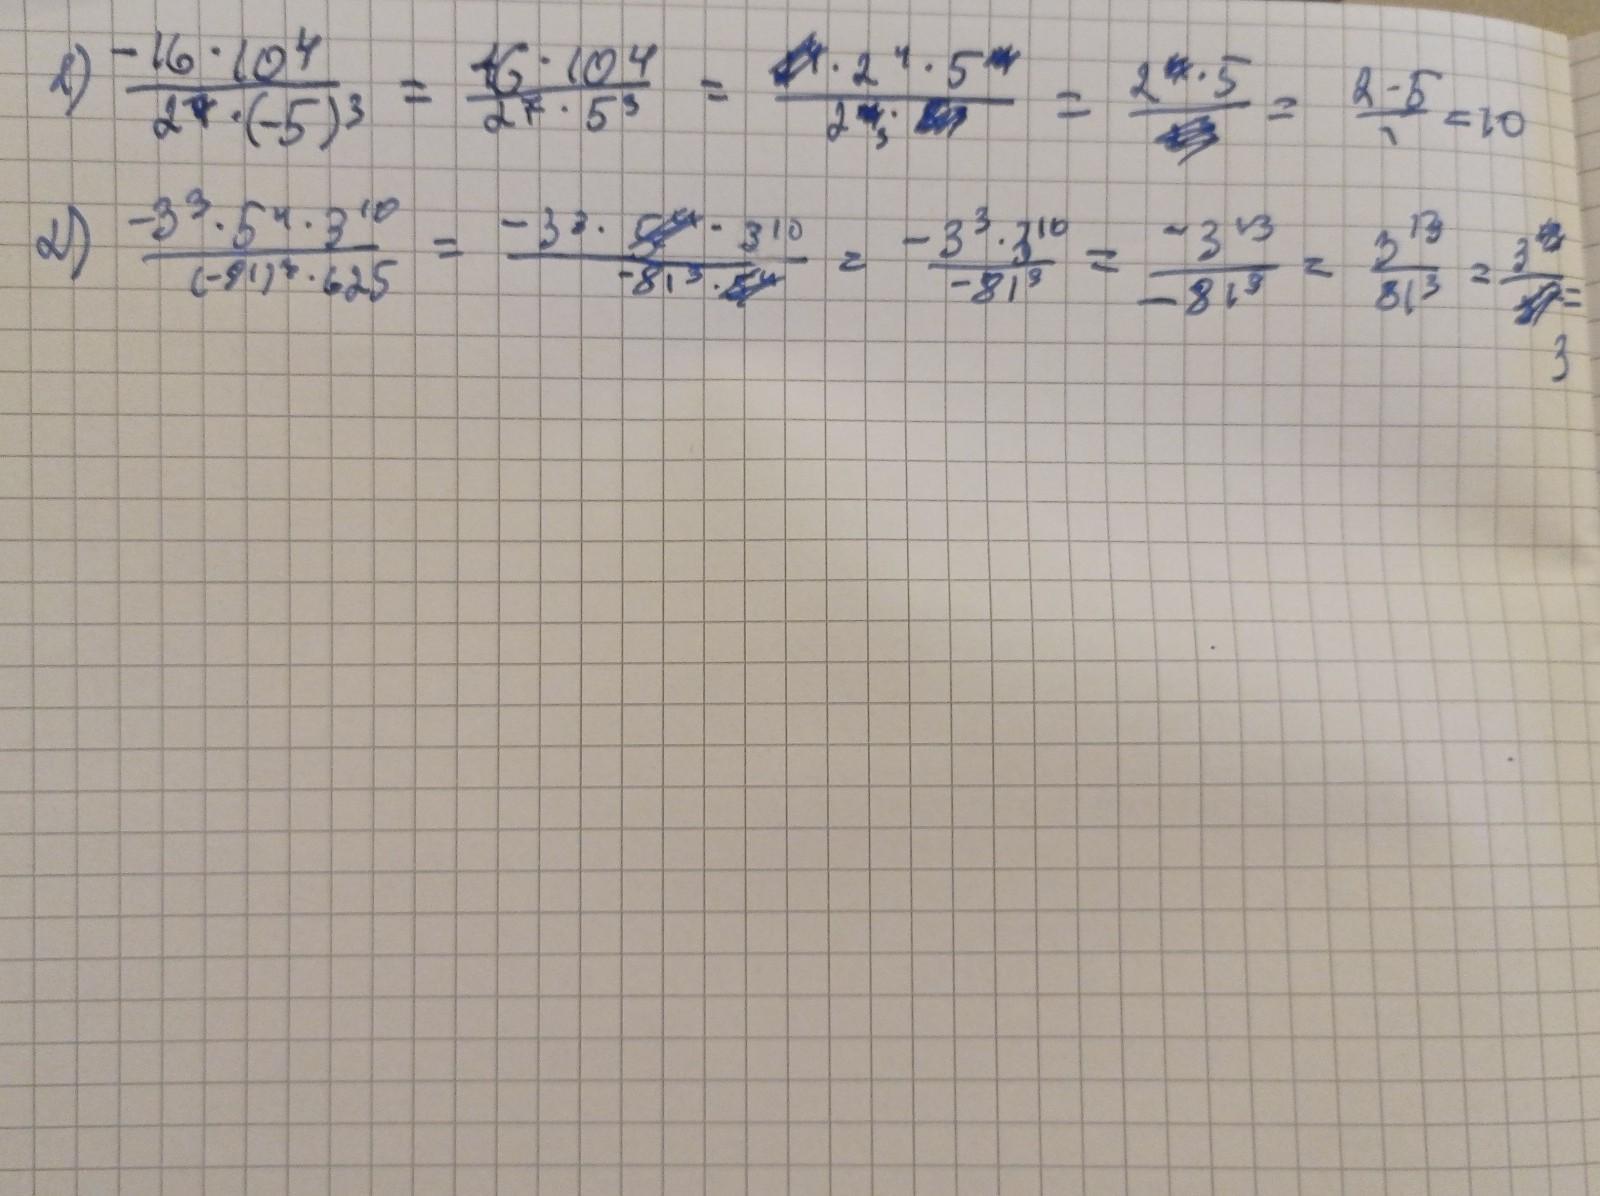 1) -16·10⁴/2⁷·(-5)³ = 16·10⁴/2⁷·5³ = ·2⁴·5/2₃· = 2·5/ = 2·5/1 = 10
2) -3³·5⁴·3¹⁰/(-81)³·625 = -3³·5⁴·3¹⁰/-81³·5⁴ = -3³·3¹⁰/-81³ = -3¹³/-81³ = 3¹³/81³ = 3/ =
3